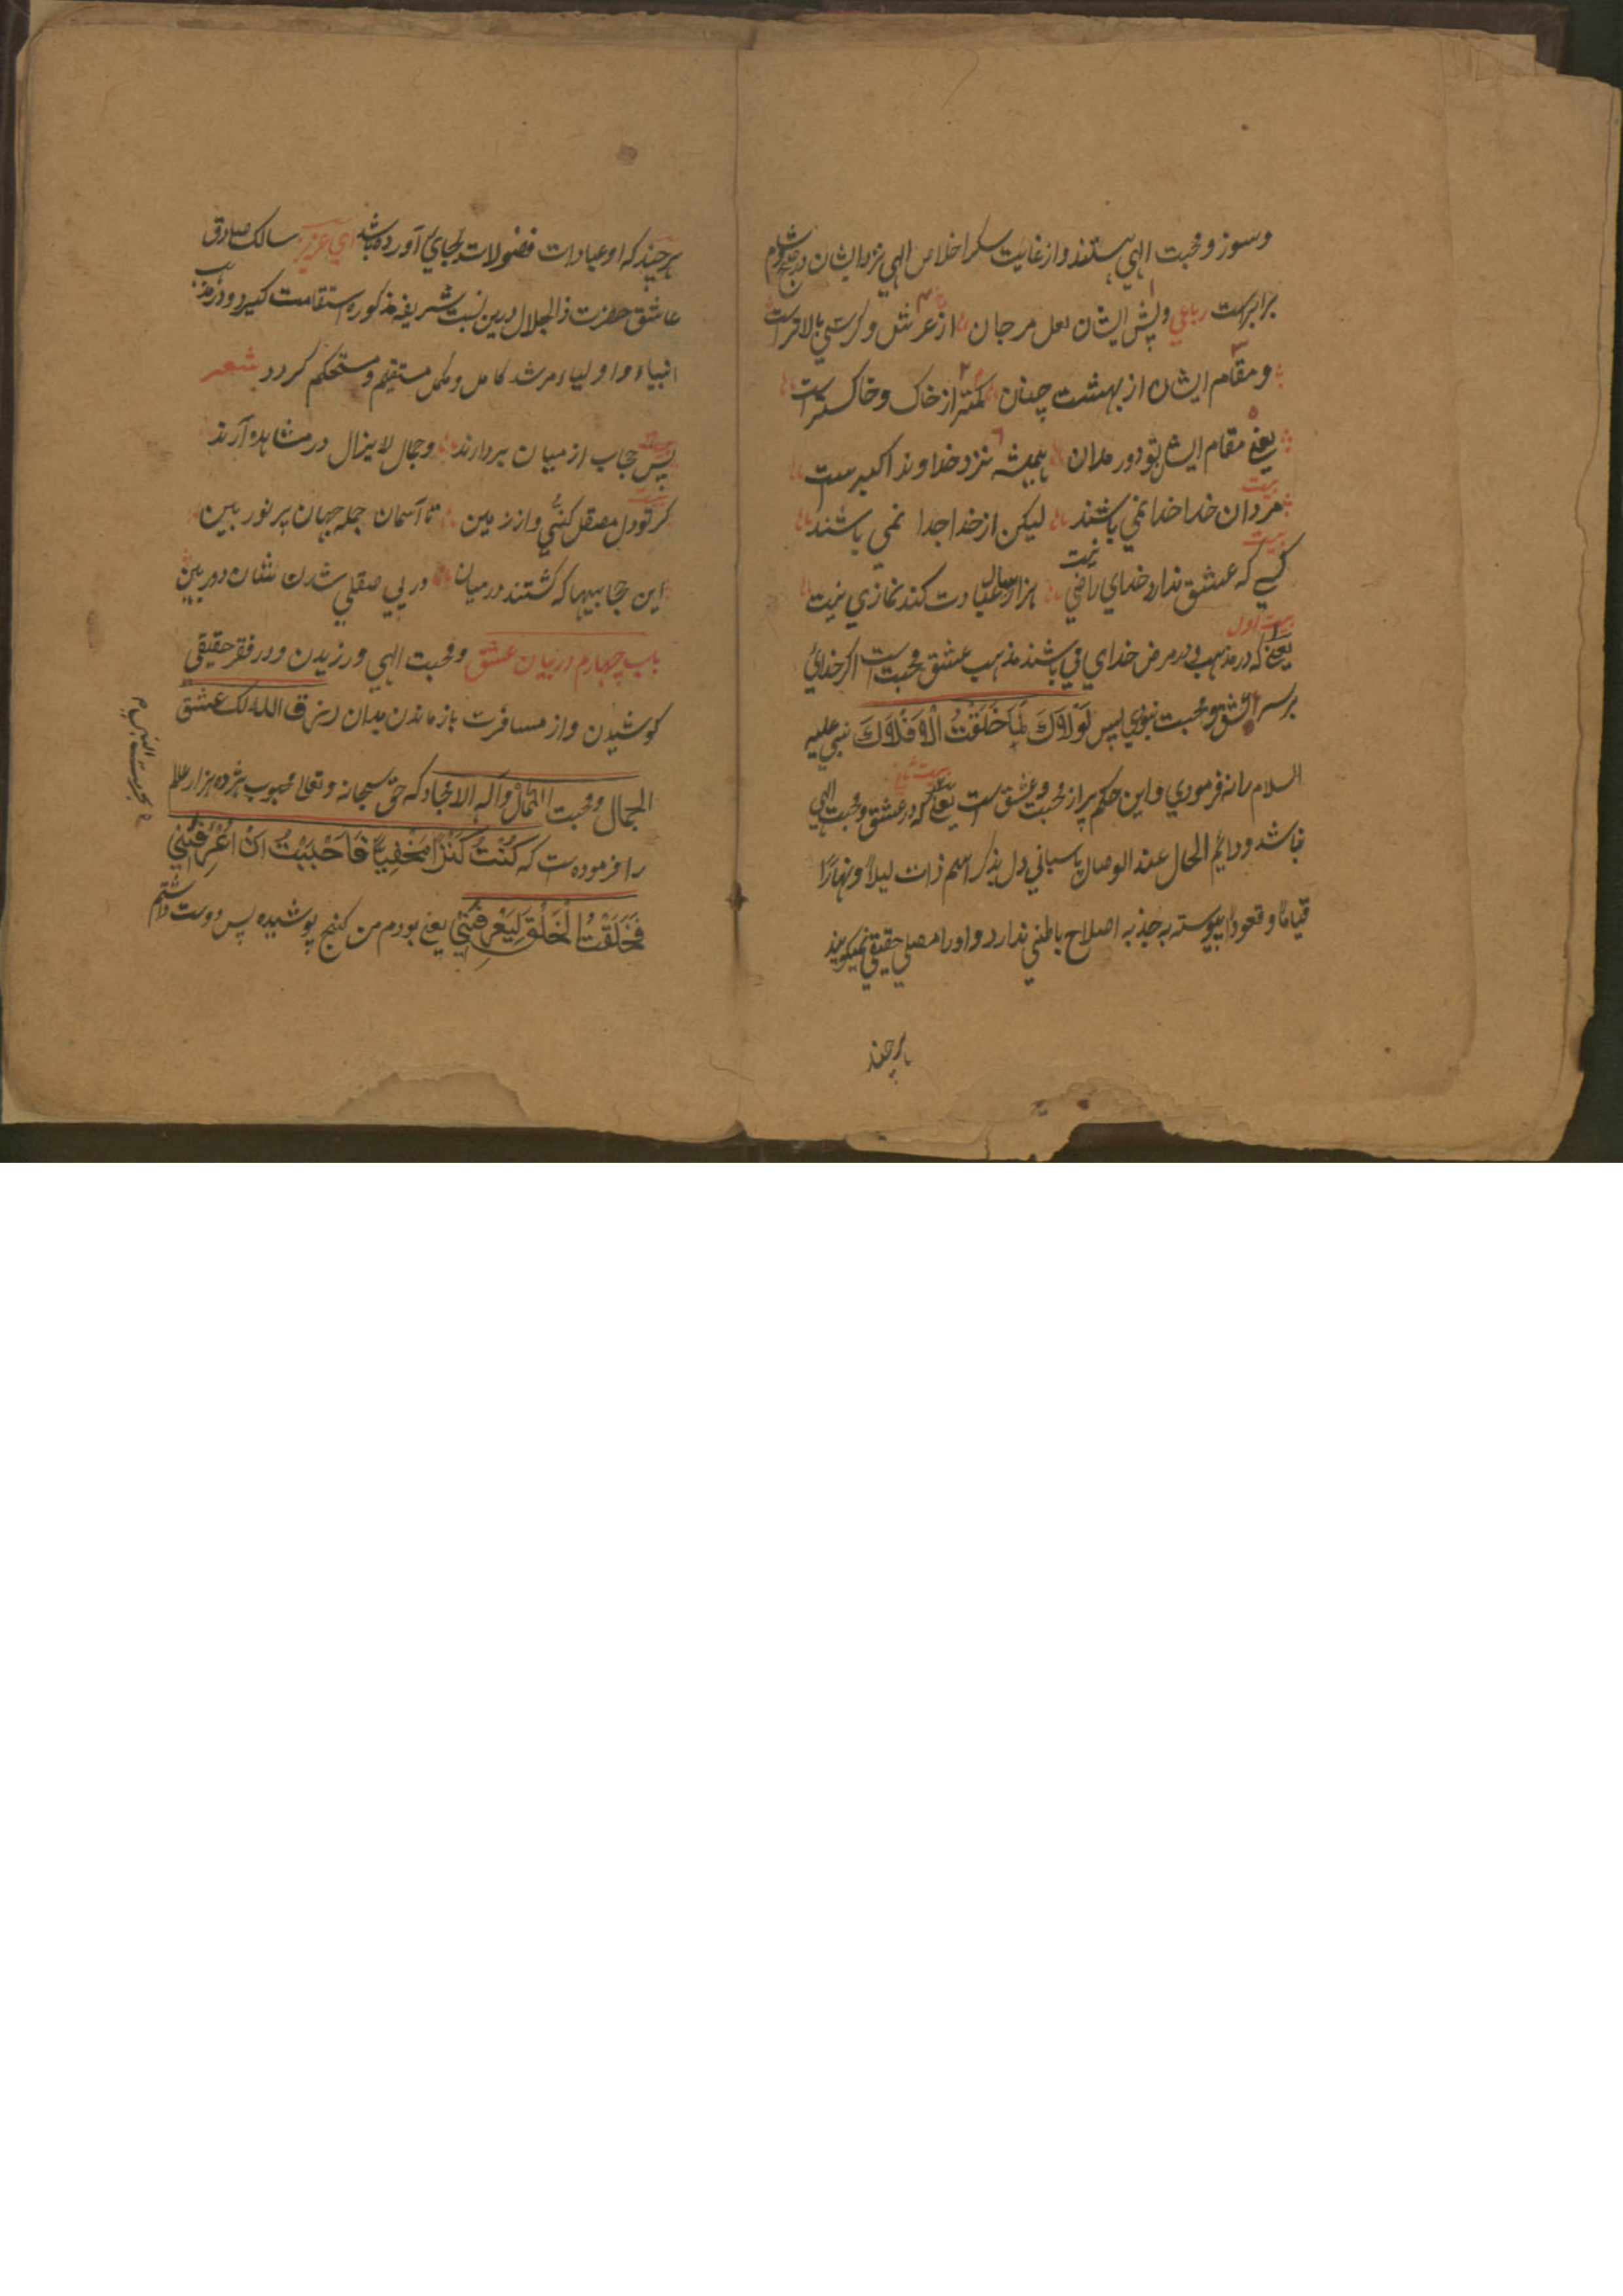 وسوز و محبت الهي هستند و از غايت سكر اخلاص الهي نزد ايشان
برابرست رباعي و پيش ايشان لعل مرجان از عرش و كرسي بالاترست
و مقام ايشان از بهشت چنان كمتر از خاك و خاكسترست
يعني مقام ايشان بود هميشه نزد خداوند اكبرست
بيت
مردان خدا خدا نمي باشند ليكن از خدا جدا نمي باشند
بيت
كسي كه عشق ندارد خداي راضي نيست هزار سال عبادت كند نمازي نيست
بيت اول
يعني كه در مذهب و در مرض خداي في باشند مذهب عشق و محبت است اكر خدائ
بر سر عشق و محبت نبودي پس لَوْلَاكَ لَمَا خَلَقْتُ الْأَفْلَاكَ نبي عليه
السلام را نه فرمودي و اين حكم پر از محبت و عشق است يعني كه در عشق و محبت الهي
نباشد و دايم الحال عند الوصال پاسباني دل بذكر اسم ذات ليلاً و نهاراً
قياماً و قعوداً پيوسته به جذبه اصلاح باطني ندارد و او را مصلي حقيقي نميكويند
هرچند
هرچند كه او عبادات فضولات بجاي آورده باشد اي عزيز سالك صادق
عاشق حضرت ذالجلال درين نسبت شريفه مذكوره استقامت كيرد و در مذهب
انبياء و اولياء مرشد كامل و مكمل مستقيم و مستحكم كردد شعر
پس حجاب از ميان بردارند و جمال لايزال در مشاهده آرند
كر تو دل مصقل كني واز زمين تا آسمان جمله جهان پر نور بين
اين حجابيها كه كشتند درميان در پي صقلي شدن نشان دور بين
باب چهارم در بيان عشق و محبت الهي ورزيدن و در فقر حقيقي
كوشيدن و از مسافرت باز ماندن بدان رزق الله لك عشق
الجمال و محبت الكمال و آله الامجاد كه حق سبحانه و تعالى محبوب هژده هزار عالم
را فرموده است كه كُنْتُ كَنْزاً مَخْفِياً فَاَحْبَبْتُ اَنْ اُعْرَفَنِي
فَخَلَقْتُ الْخَلْقَ لِيَعْرِفَنِي يعني بودم من كنج پوشيده پس دوست داشتم